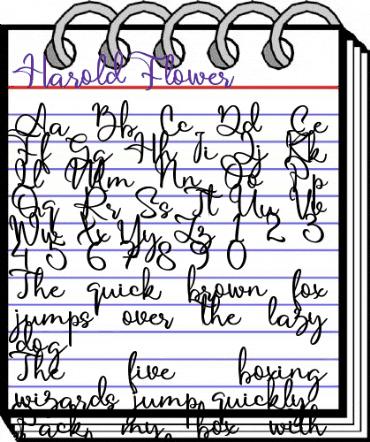 Harold Flower
Aa Bb Cc Dd Ee
Ff Gg Hh Ii Jj Kk
Ll Mm Nn Oo Pp
Qq Rr Ss Tt Uu Vv
Ww Xx Yy Zz 1 2 3
4 5 6 7 8 9 0
The quick brown fox
jumps over the lazy
dog
The five boxing
wizards jump quickly
Pack my box with